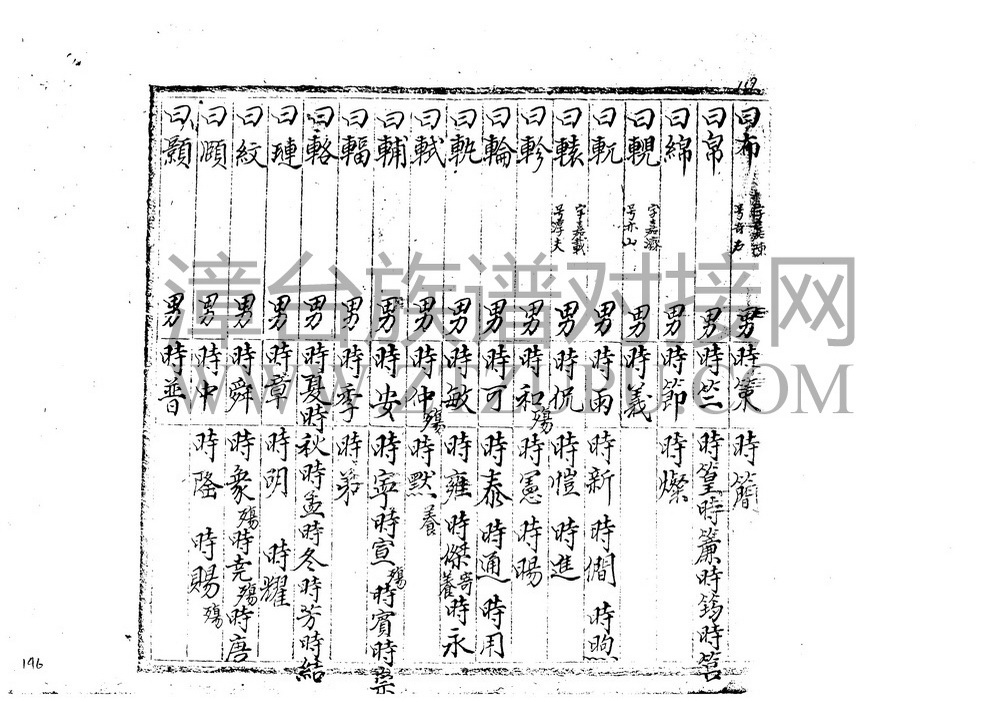 曰布 号奇石 男 時策 時簡
曰帛 男 時竺 時篁 時簾 時筠 時筥
曰綿 男 時節 時燦
曰輗 字嘉濟 号亦山 男 時義
曰軏 男 時雨 時新 時僩 時煦
曰轅 字嘉載 号淳夫 男 時侃 時愷 時進
曰軫 男 時和殤 時憲 時暘
曰輪 男 時可 時泰 時通 時用
曰軌 男 時敏 時雍 時傑寄養 時永
曰軾 男 時仲殤 時默養
曰輔 男 時安 時寧 時宣殤 時賓 時宗
曰輻 男 時季 時弟
曰輅 男 時夏 時秋 時孟 時冬 時芳 時結
曰璉 男 時章 時明 時耀
曰紋 男 時舜 時衆殤 時堯殤 時唐
曰頤 男 時中 時隆 時賜殤
曰顥 男 時普
漳台族谱对接网
WWW.ZTZUPU.COM
196